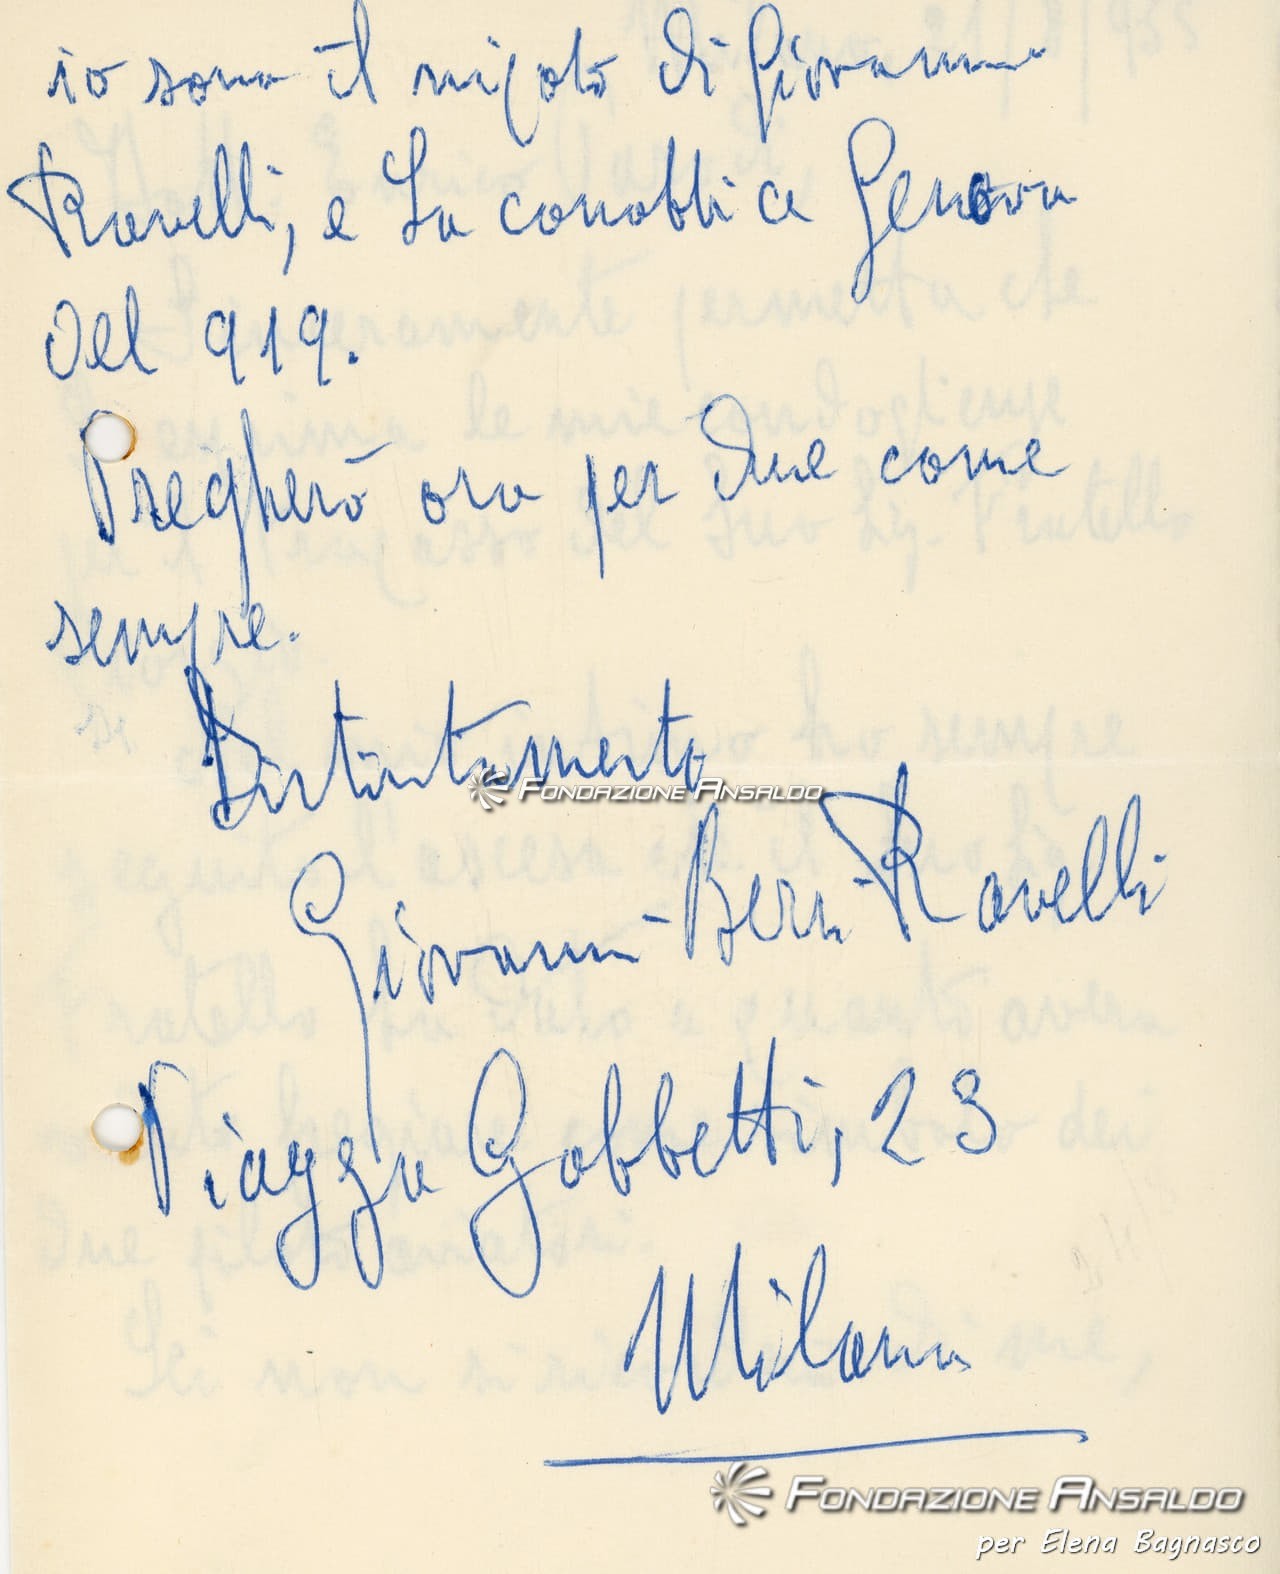 io sono il nipote di Giovanni
Ravelli, e La conobbi a Genova
del 919.
Pregherò ora per due come
sempre.
Distintamente
Giovanni-Bern-Ravelli
Piazza Gobbetti, 23
Milano
FONDAZIONE ANSALDO
FONDAZIONE ANSALDO
per Elena Bagnasco